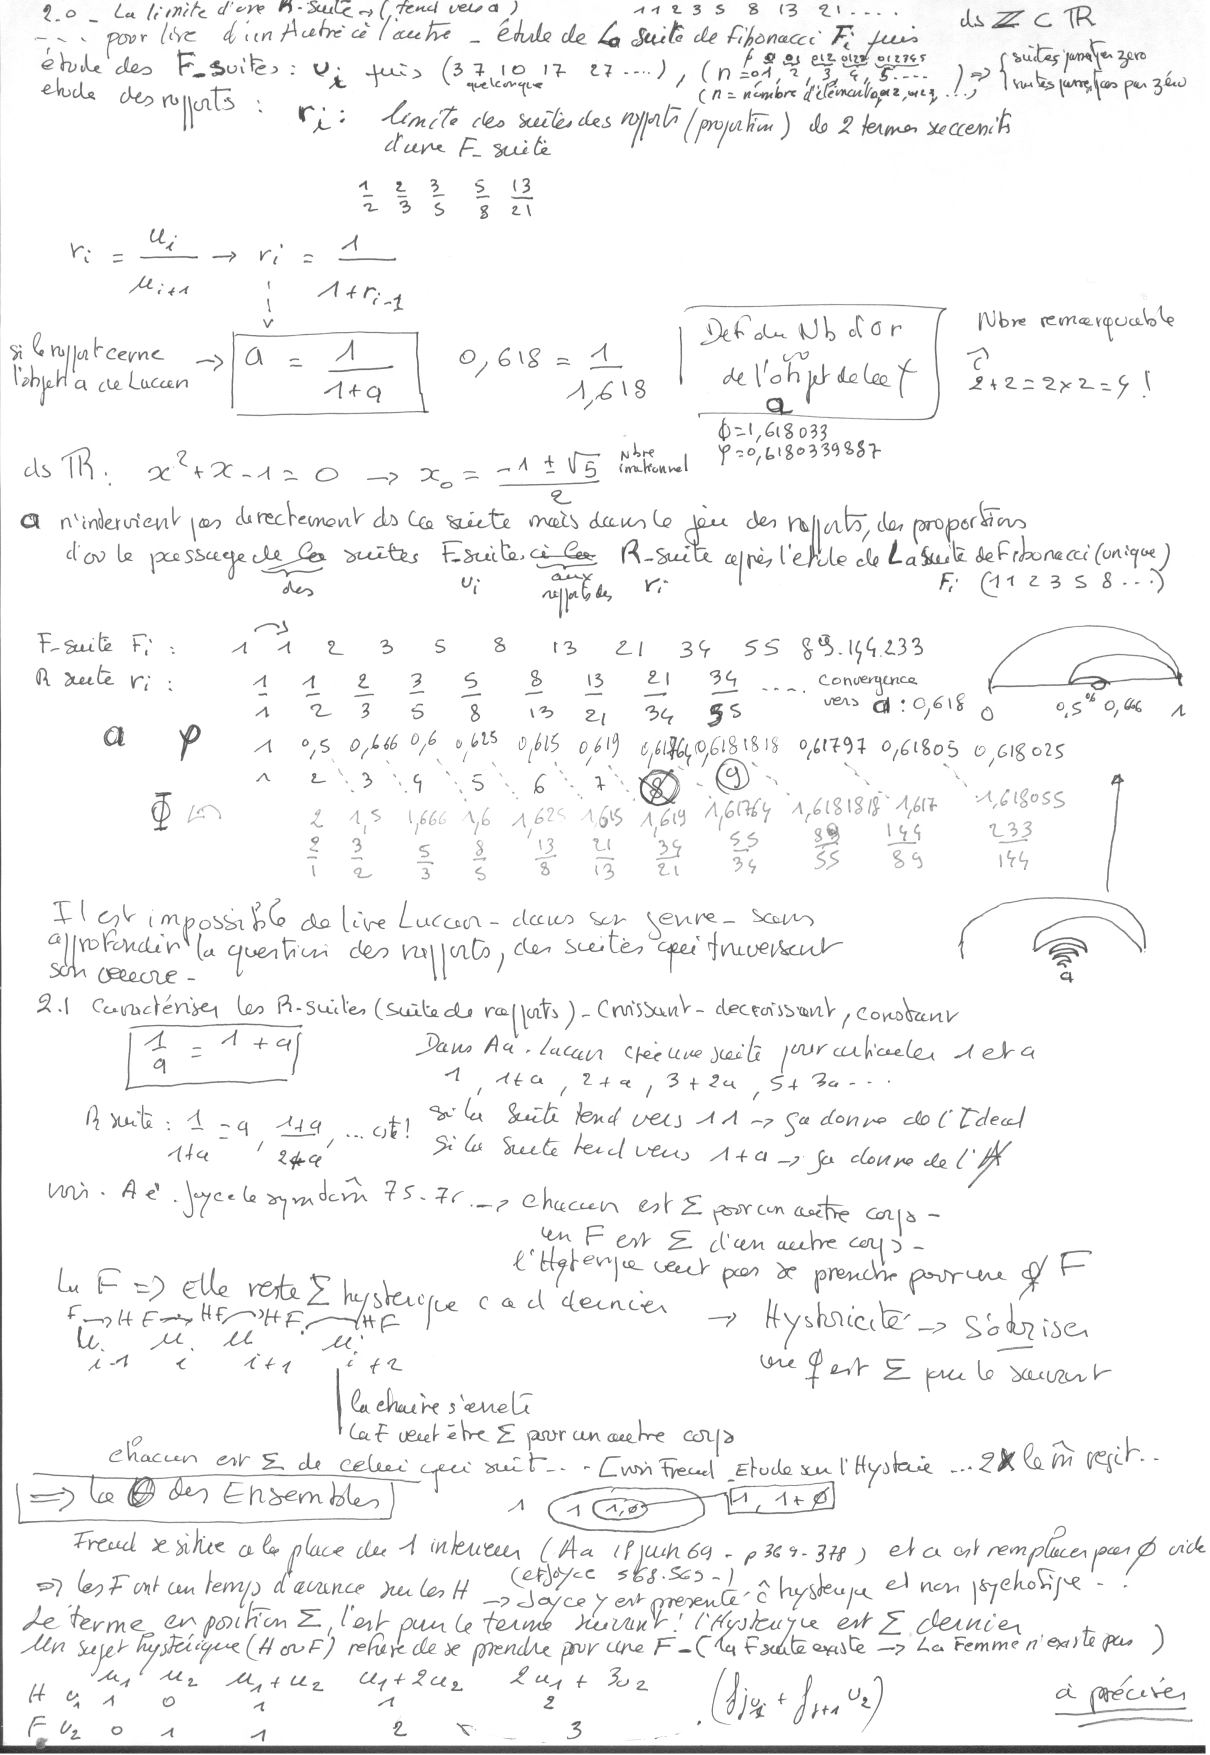 2.0 - La limite d'une R-suite → (tend vers a) 1 1 2 3 5 8 13 21 .... ds ℤ ⊂ ℝ
--- pour lire d'un Autre à l'autre - étude de La suite de Fibonacci Fi puis
étude des F-suites : Ui puis (3 7 10 17 27 ....), (n = 0 1, 2, 3, 4, 5 ....) ⇒ { suites
quelconque (n = nombre d'éléments
étude des rapports : ri : limite des suites des rapports (proportion) de 2 termes successifs
d'une F-suite
1/2 2/3 3/5 5/8 13/21
ri = ui / ui+1 → ri = 1 / 1+ri-1
si le rapport cerne l'objet a de Lacan → a = 1 / 1+a 0,618 = 1 / 1,618
Def du Nb d'Or
de l'objet de la
a
Nbre remarquable
2+2 = 2x2 = 4 !
Φ = 1,618033
φ = 0,6180339887
ds ℝ : x² + x - 1 = 0 → x₀ = -1 ± √5 / 2 Nbre irrationnel
a n'intervient pas directement ds la suite mais dans le jeu des rapports, des proportions
d'où le passage de la des suites F-suites à la aux rapports des R-suite après l'étude de La suite de Fibonacci (unique)
Ui ri Fi (1 1 2 3 5 8 ...)
F-suite Fi : 1 1 2 3 5 8 13 21 34 55 89.144.233
R suite ri : 1/1 1/2 2/3 3/5 5/8 8/13 13/21 21/34 34/55 .... convergence vers a : 0,618
0 0,5 0,6 0,666 1
a φ 1 0,5 0,666 0,6 0,625 0,615 0,619 0,61764 0,6181818 0,61797 0,61805 0,618025
1 2 3 4 5 6 7 8 9
Φ 2 1,5 1,666 1,6 1,625 1,615 1,619 1,61764 1,6181818 1,617 1,618055
2/1 3/2 5/3 8/5 13/8 21/13 34/21 55/34 89/55 144/89 233/144
Il est impossible de lire Lacan - dans son genre - sans
approfondir la question des rapports, des suites qui traversent
son oeuvre -
a
2.1 Caractériser les R-suites (suite de rapports) - Croissant - decroissant, constant
1/a = 1 + a
Dans Aa. Lacan crée une suite pour articuler 1 et a
1, 1+a, 2+a, 3+2a, 5+3a ...
R suite : 1/1+a = a, 1+a/2+a, ... cste !
si la suite tend vers 1 1 → ça donne de l'Idéal
si la suite tend vers 1+a → ça donne de l'A
voir . Joyce le symptôm 75-76 .. → chacun est Σ pour un autre corps -
un F est Σ d'un autre corps -
l'Hysterique veut pas se prendre pour une F
La F ⇒ elle reste Σ hysterique c a d dernier
F → H F → HF → HF HF
ui-1 ui ui+1 ui+2
→ Hystoricité → S'
une est Σ par le suivant
la chaine s'arrete
La F veut être Σ pour un autre corps
chacun est Σ de celui qui suit ... [voir Freud Etude sur l'Hysterie ...
⇒ la des Ensembles 1 1 1, ∅ 1, 1+∅
Freud se situe a la place du 1 interieur (Aa 18 juin 69 - p 369-378) et a est remplacer par ∅ vide
(et Joyce 568.569 -)
⇒ les F ont un temps d'avance sur les H → Joyce y est presenté ĉ hysterique et non psychotique - . !
Le terme en position Σ, l'est par le terme suivant ! l'Hysterique est Σ dernier
Un sujet hystérique (H ou F) refuse de se prendre pour une F - (la F suite existe → La Femme n'existe pas)
u1 u2 u1+u2 u1+2u2 2u1+3u2
H u1 1 0 1 1 2
F u2 0 1 1 2 3
à préciser